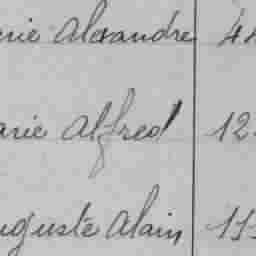 Alexandre
arie Alfred 12
uguste Alain